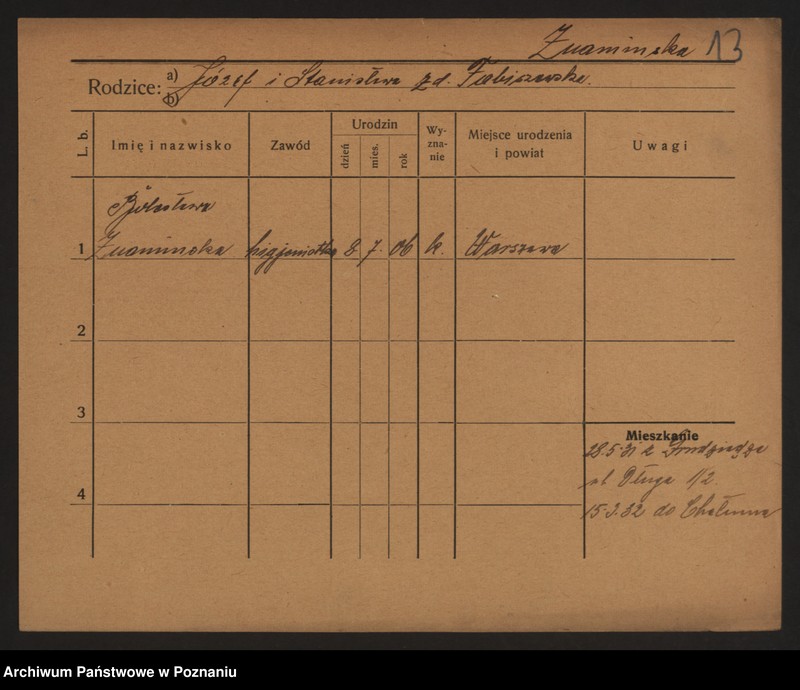 Znaminska 13
Rodzice: a) Józef i Stanisława zd. Fabiszewska.
b)
L. b. Imię i nazwisko Zawód Urodzin dzień mies. rok Wy-zna-nie Miejsce urodzenia i powiat Uwagi
Bolesława
1 Znaminska higjenistka 8 7 06 k. Warszawa
2
3
Mieszkanie
28.5.31 z Grudziądza
ul Długa 1/2
4
15.3.32 do Chełmna
Archiwum Państwowe w Poznaniu